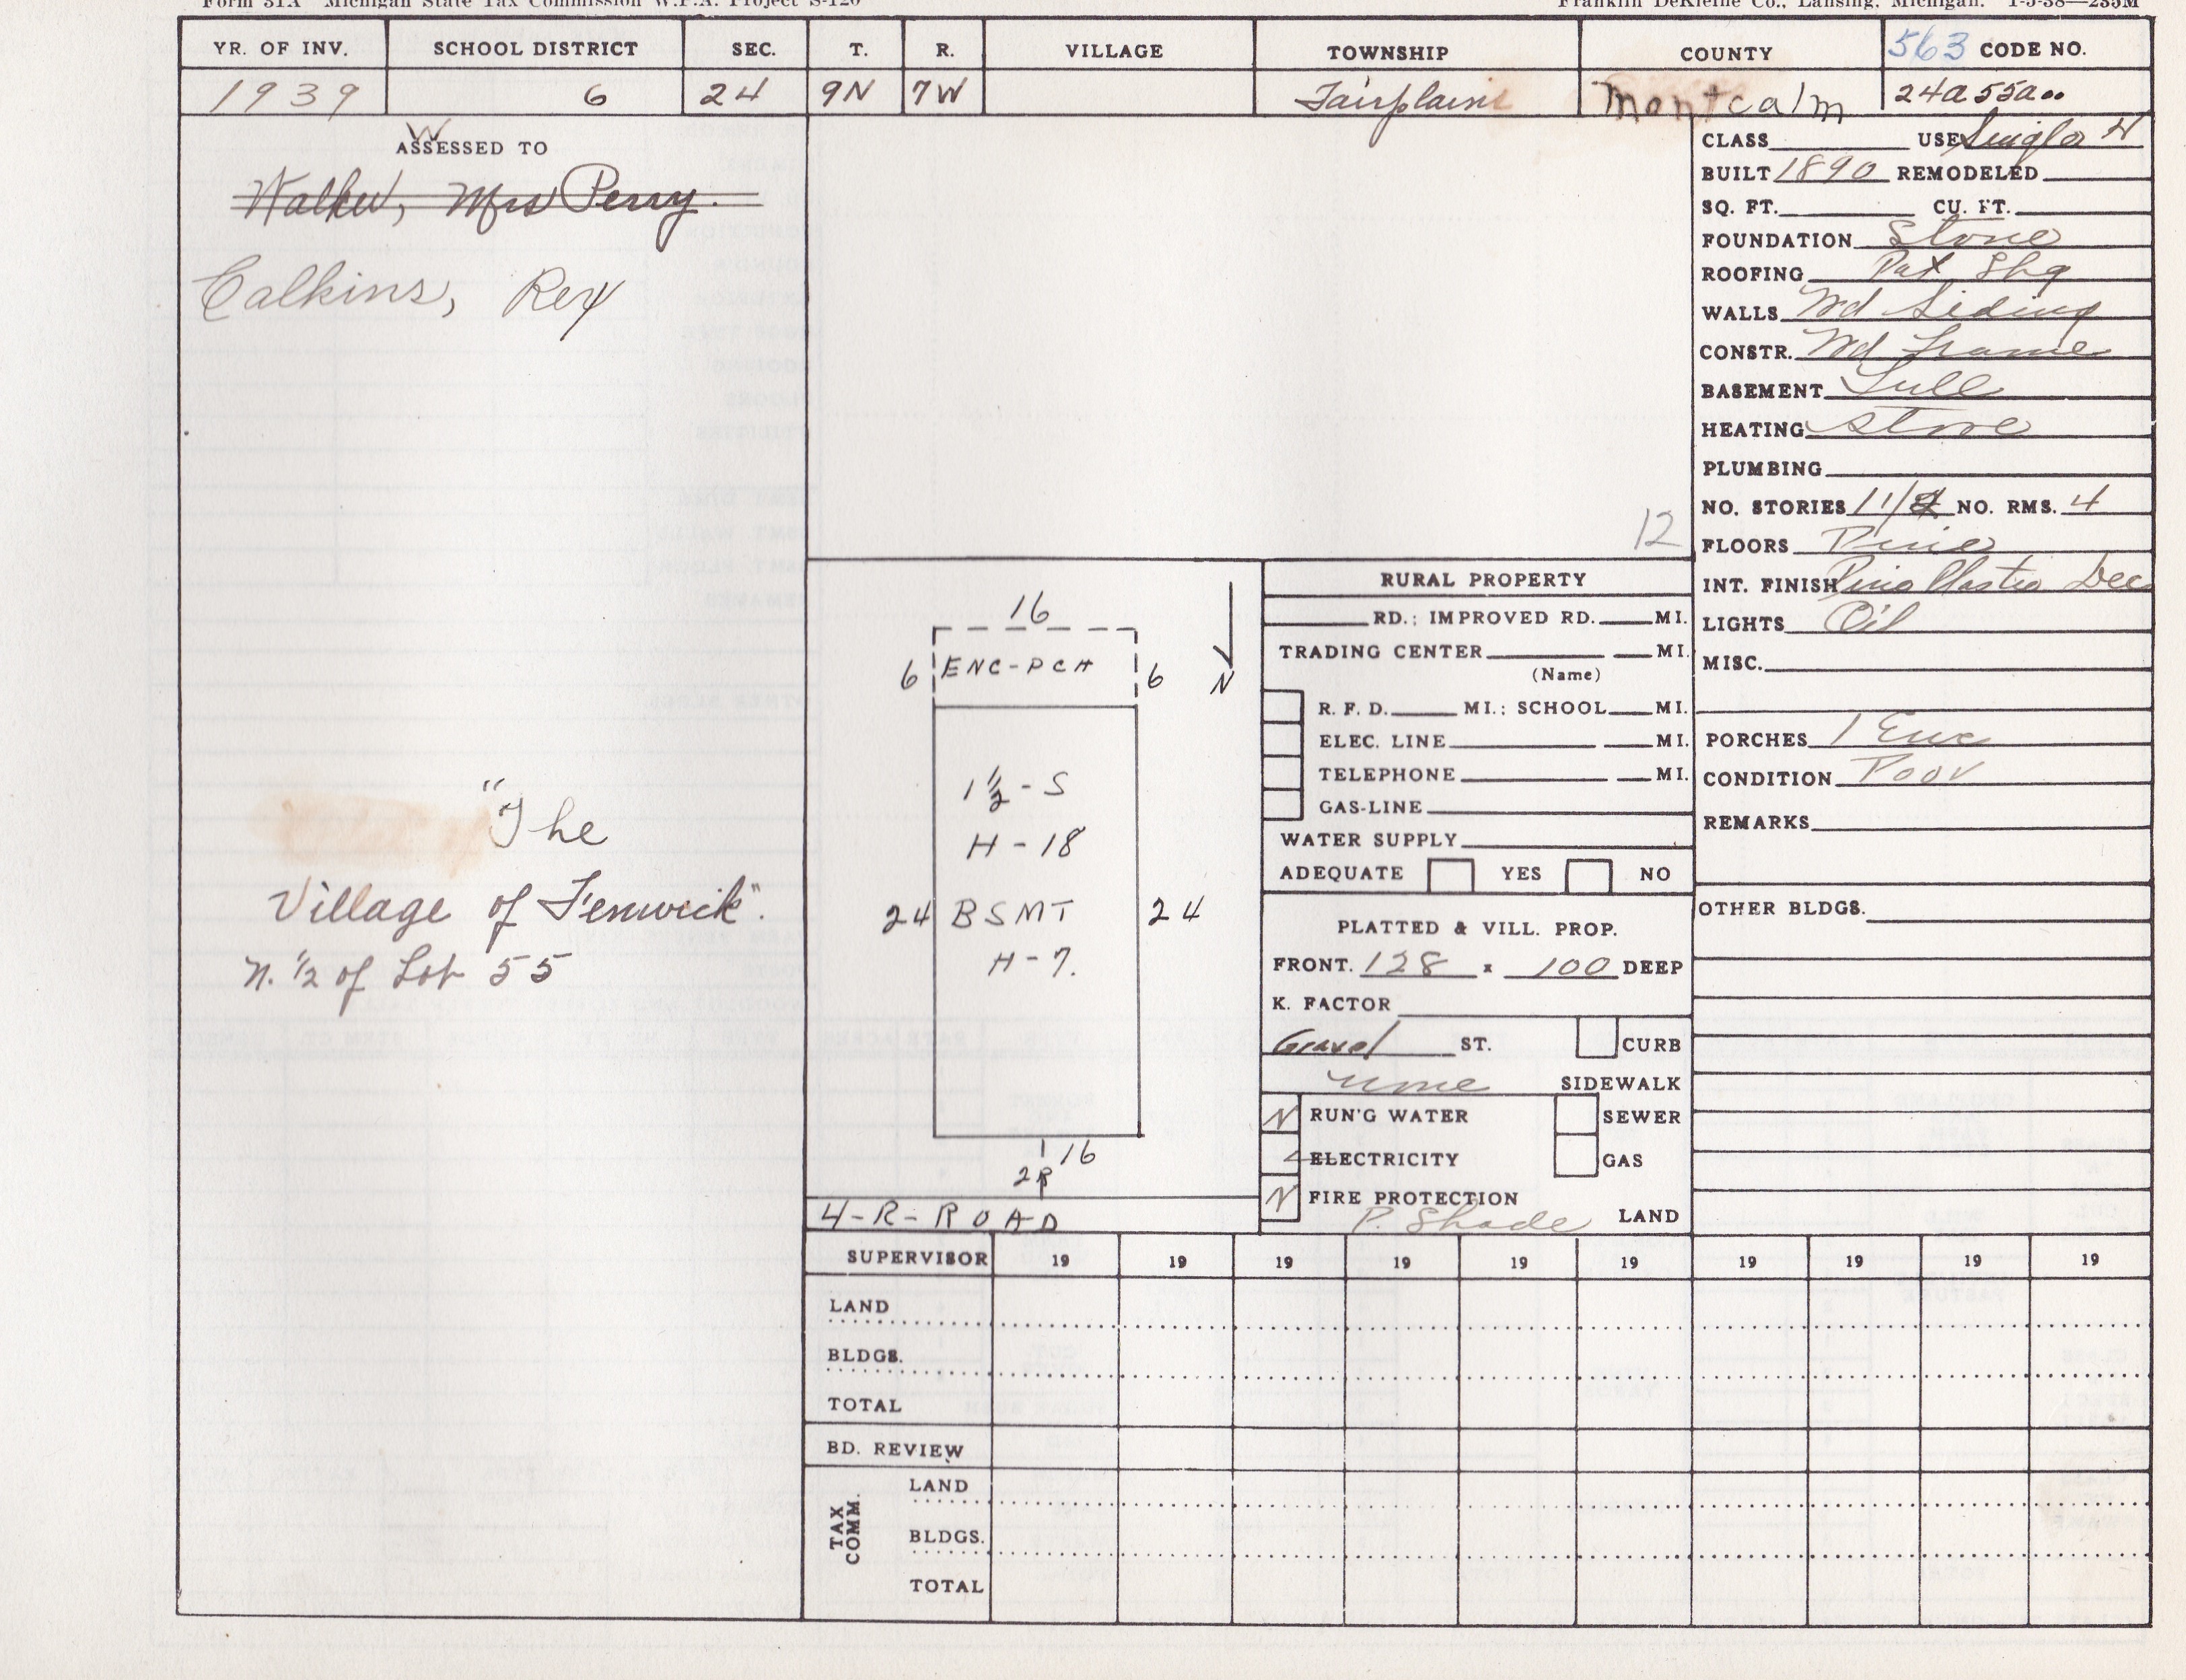 Form 31A Michigan State Tax Commission W.P.A. Project S-120
Franklin DeKleine Co., Lansing, Michigan. 1-5-38—235M
YR. OF INV. SCHOOL DISTRICT SEC. T. R. VILLAGE TOWNSHIP COUNTY 563 CODE NO.
1939 6 24 9N 7W Fairplains Montcalm 24a55a..
W
ASSESSED TO
Walker, Mrs Perry.
Calkins, Rex
"The
Village of Fenwick".
N. 1/2 of Lot 55
12
16
6 ENC-PCH 6
N
1 1/2 - S
H - 18
24 BSMT 24
H - 7.
16
2R
4-R-ROAD
RURAL PROPERTY
RD.; IMPROVED RD. MI.
TRADING CENTER MI.
(Name)
R. F. D. MI.; SCHOOL MI.
ELEC. LINE MI.
TELEPHONE MI.
GAS-LINE
WATER SUPPLY
ADEQUATE YES NO
PLATTED & VILL. PROP.
FRONT. 128 x 100 DEEP
K. FACTOR
Gravel ST. CURB
none SIDEWALK
N RUN'G WATER SEWER
ELECTRICITY GAS
N FIRE PROTECTION
P. Shade LAND
CLASS USE Single H
BUILT 1890 REMODELED
SQ. FT. CU. FT.
FOUNDATION Stone
ROOFING Pat Shg
WALLS Wd Siding
CONSTR. Wd Frame
BASEMENT Full
HEATING Stove
PLUMBING
NO. STORIES 1 1/2 NO. RMS. 4
FLOORS Pine
INT. FINISH Pine Plaster Dec
LIGHTS Oil
MISC.
PORCHES 1 Enc
CONDITION Poor
REMARKS
OTHER BLDGS.
SUPERVISOR 19 19 19 19 19 19 19 19 19 19
LAND
BLDGS.
TOTAL
BD. REVIEW
TAX COMM.
LAND
BLDGS.
TOTAL